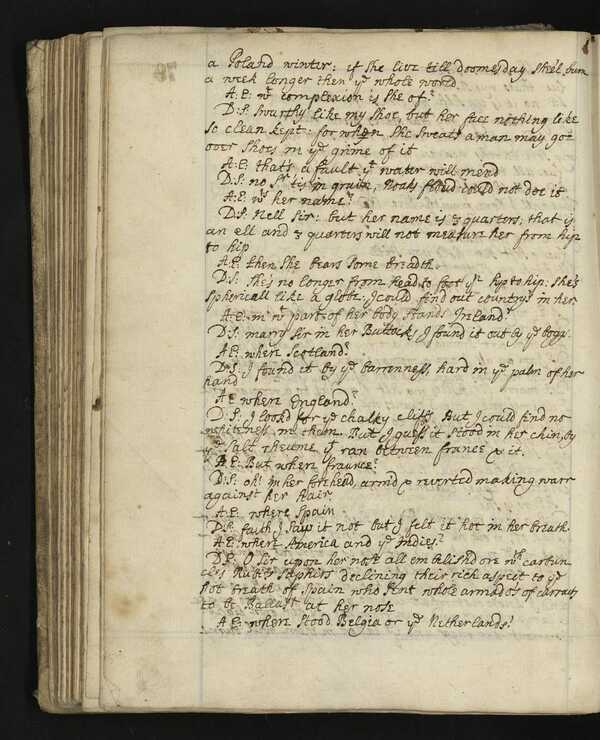 a Poland winter: if she live till doomesday she'l burn
a week longer then ye whole world
A:E: wt complexion is she of?
D:S: swarthy like my shoe, but her face nothing like
so clean kept: for when she sweats a man may goe
over shoes in ye grime of it
A:E: that's a fault yt water will mend
D:S: no Sr 'tis in grain, Noahs floud could not doe it
A:E: wt's her name?
D:S: Nell Sir: but her name is 3 quarters, that is
an ell and 3 quarters will not measure her from hip
to hip
A:E: then she bears some breadth
D:S: she's no longer from head to foot yn hip to hip: she's
sphericall like a globe: I could find out countrys in her
A:E: in wt part of her body stands Ireland?
D:S: marry sir in her Buttocks, I found it out by ye boggs
A:E: where Scotland?
D:S: I found it by ye barrenness, hard in ye palm of her
hand
A:E: where England?
D:S: I look'd for ye chalky cliffs, But I could find no
whiteness in them. But I guess it stood in her chin, by
ye salt rheume yt ran between france & it.
A:E: But where fraunce?
D:S: oh! in her forehead, arm'd & reverted making warr
against her hair
A:E: where Spain
D:S: faith I saw it not but I felt it hot in her breath
A:E: where America and ye Indies?
D:S: O sir upon her nose all embelishd ore wth carbun
cles Rubys Saphirs declining their rich aspect to ye
hot breath off Spain who sent whole armados of carracts
to be Ballast at her nose
A:E: where stood Belgia or ye Netherlands?